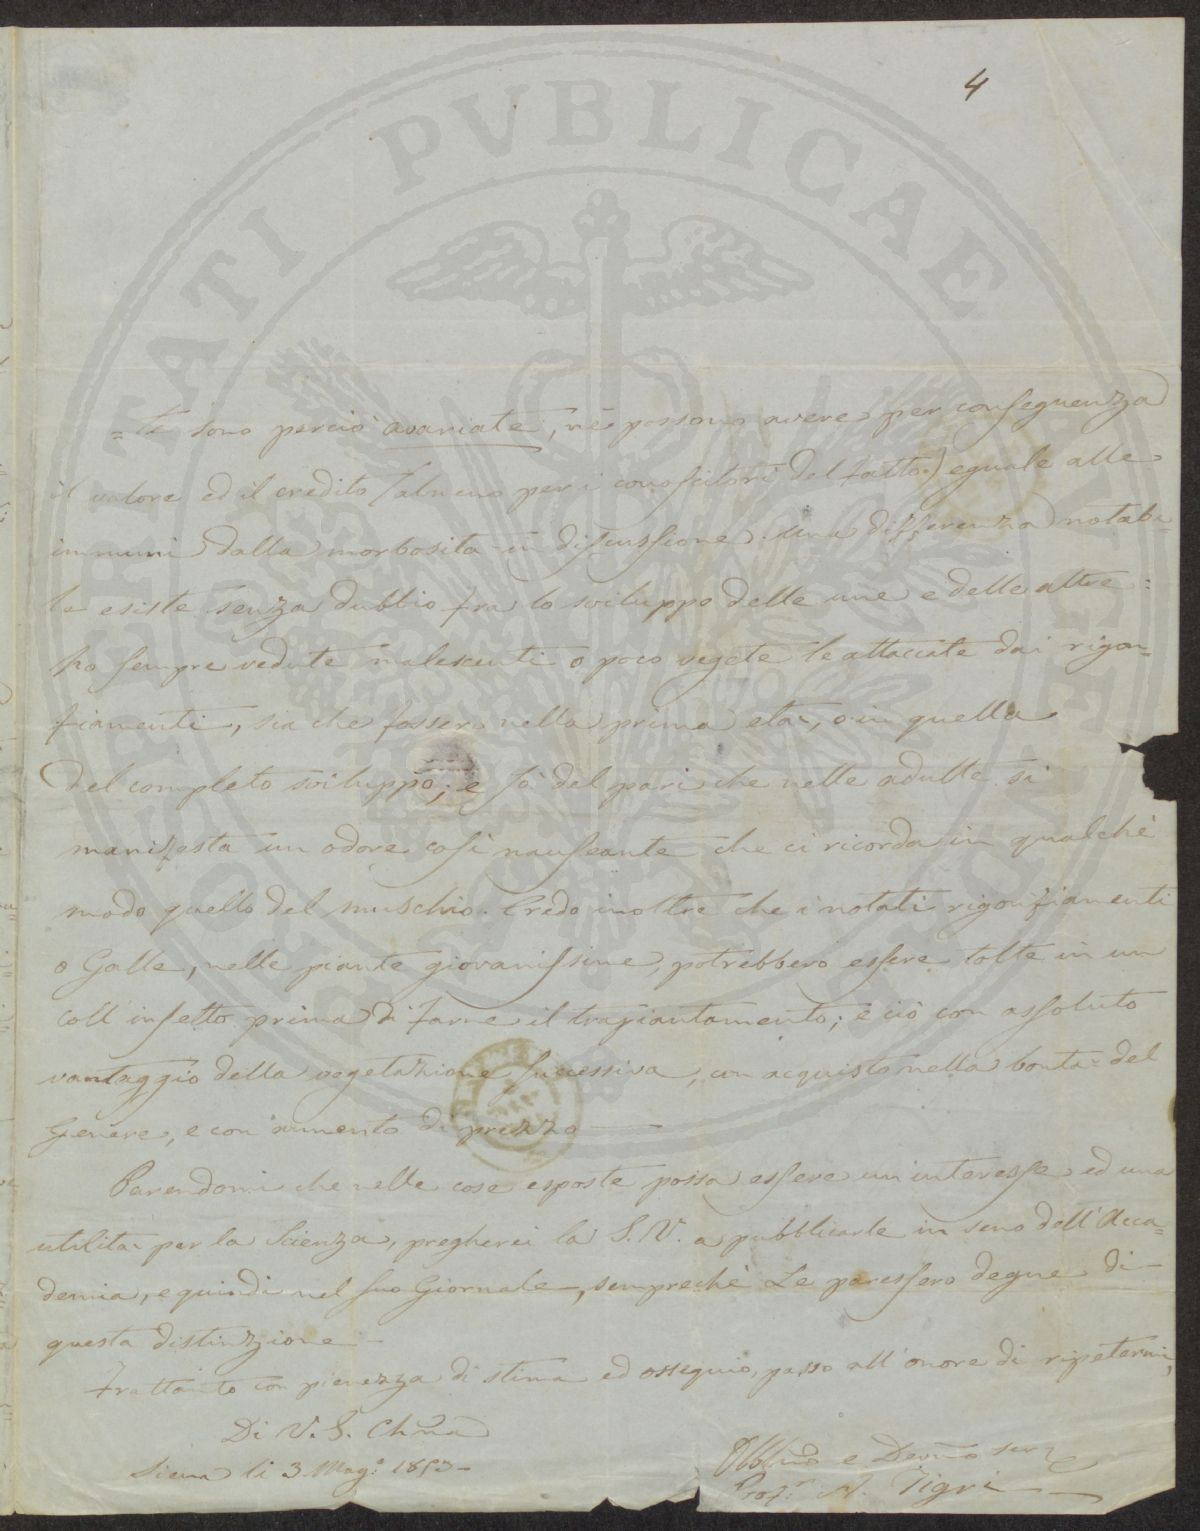 4
=te sono perciò avariate, nè possono avere per conseguenza
il valore ed il credito (almeno per i conoscitori del fatto) eguale alle
immuni dalla morbosità in discussione. Una differenza notabi=
le esiste senza dubbio fra lo sviluppo delle une e delle altre:
ho sempre vedute malescenti o poco vegete le attaccate dai rigon=
fiamenti, sia che fossero nella prima età, o in quella
del completo sviluppo; e sò del pari che nelle adulte si
manifesta un odore così nauseante che ci ricorda in qualche
modo quello del muschio. Credo inoltre che i notati rigonfiamenti
o Galle, nelle piante giovanissime, potrebbero essere tolte in un
coll'insetto prima di farne il trapiantamento; e ciò con assoluto
vantaggio della vegetazione successiva, un acquisto nella bontà del
Genere, e con aumento di prezzo —
Parendomi che nelle cose esposte possa essere un interesse ed una
utilità per la Scienza, pregherei la S. V. a pubblicarle in seno dell'Acca=
demia, e quindi nel suo Giornale, sempreché Le paressero degne di
questa distinzione —
Frattanto con pienezza di stima ed ossequio, passo all'onore di ripetermi,
Di V. S. Chma
Siena li 3 Mago 1853 —
Obbmo e Devmo
Profr. A. Tigri
PVBLICAE